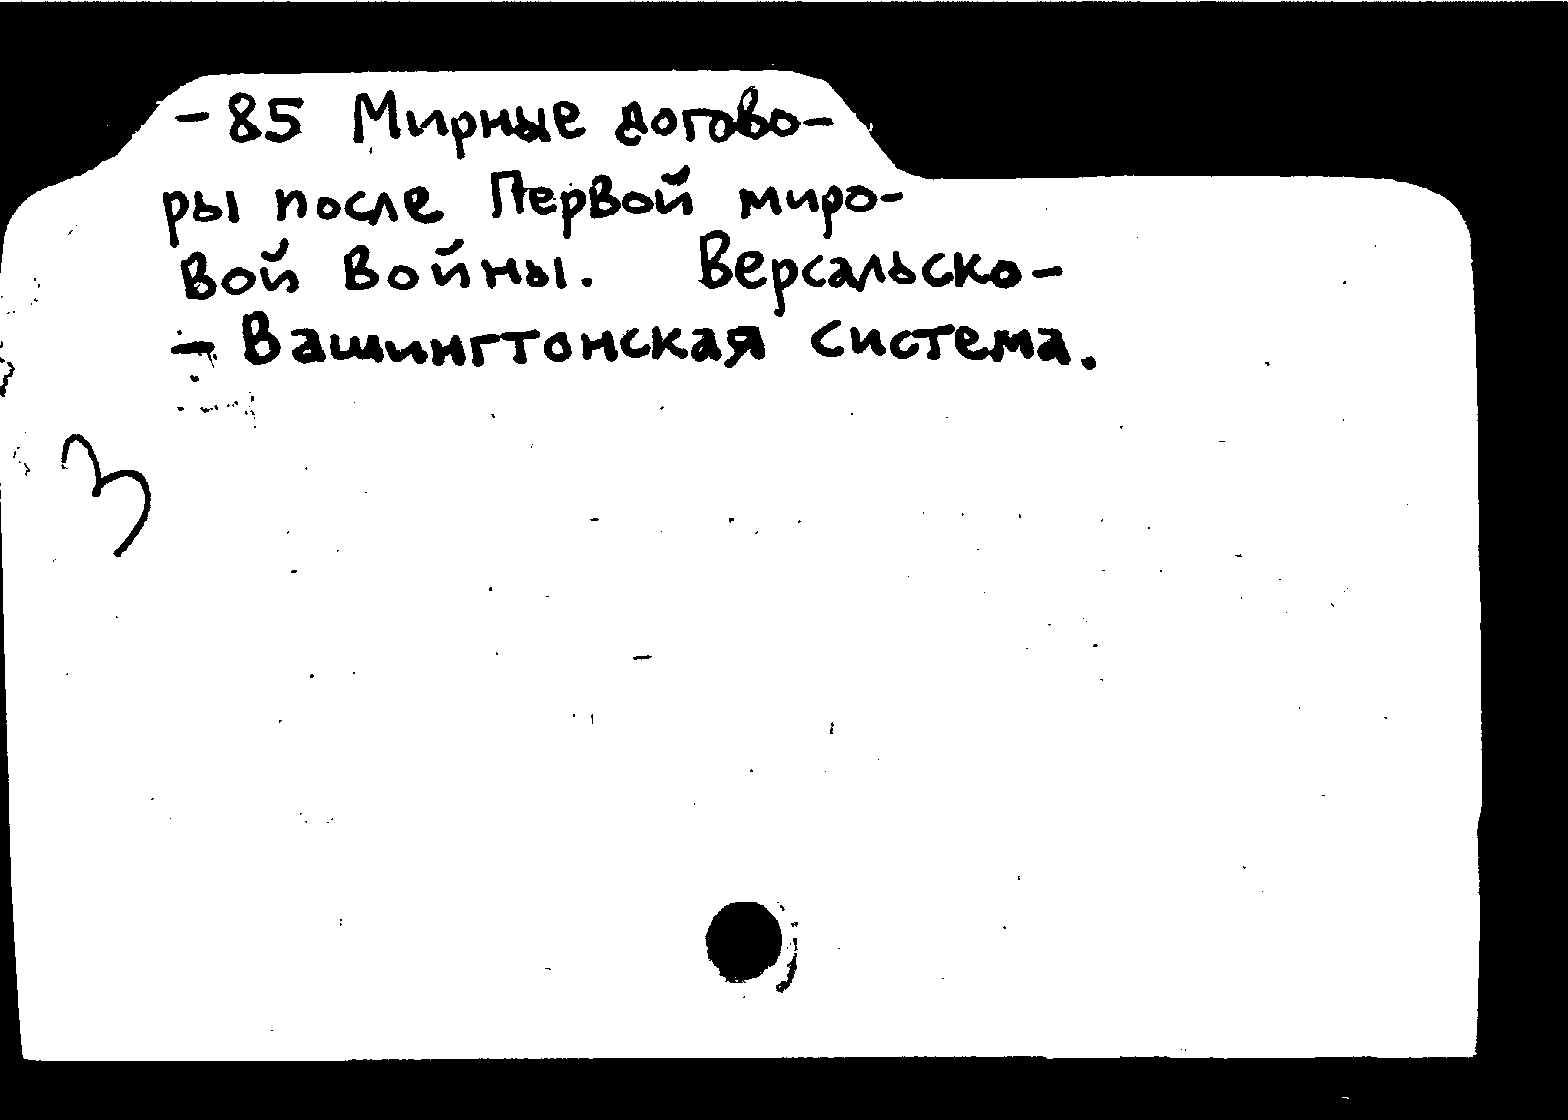 -85 Мирные догово-
ры после Первой миро-
вой войны. Версальско-
- Вашингтонская система.
3